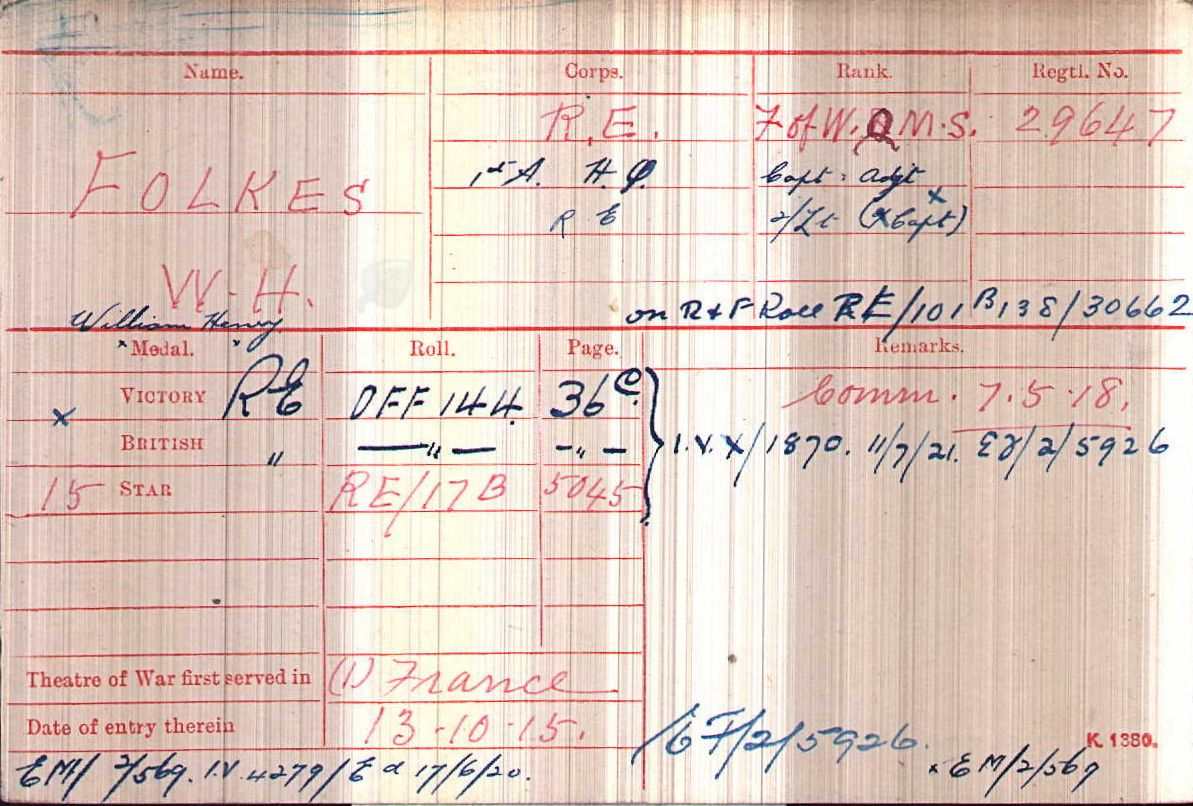 Name. Corps. Rank. Regtl. No.
FOLKES R.E. F of W.Q.M.S. 29647
1st A. H.Q. Capt & Adjt
R E 2/Lt (A/Capt) x
W. H.
William Henry on R & F Roll RE/101 B138/30662
Medal. Roll. Page. Remarks.
x VICTORY RE OFF 144 36 C. Comm. 7.5.18.
BRITISH " —"— -"- I.V.X/1870. 11/7/21. /2/5926
15 STAR RE/17 B 5045
Theatre of War first served in (1) France
Date of entry therein 13-10-15. /2/5926.
K. 1380.
EM/ 2/569. I.V. 4279/E d 17/6/20. x EM/2/569